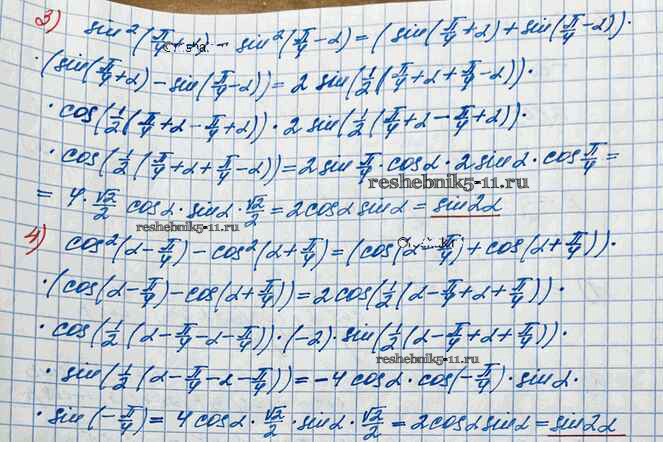 3) sin²(π/4+α) - sin²(π/4-α) = (sin(π/4+α) + sin(π/4-α))·
·(sin(π/4+α) - sin(π/4-α)) = 2 sin(1/2(π/4+α+π/4-α))·
·cos(1/2(π/4+α-π/4+α))·2 sin(1/2(π/4+α-π/4+α))·
·cos(1/2(π/4+α+π/4-α)) = 2 sin π/4 · cosα · 2 sinα · cos π/4 =
reshebnik5-11.ru
= 4·√2/2 cosα·sinα·√2/2 = 2cosα sinα = sin2α
reshebnik5-11.ru
4) cos²(α-π/4) - cos²(α+π/4) = (cos(α-π/4) + cos(α+π/4))·
·(cos(α-π/4) - cos(α+π/4)) = 2cos(1/2(α-π/4+α+π/4))·
·cos(1/2(α-π/4-α-π/4))·(-2)·sin(1/2(α-π/4+α+π/4))·
reshebnik5-11.ru
·sin(1/2(α-π/4-α-π/4)) = -4 cosα·cos(-π/4)·sinα·
·sin(-π/4) = 4 cosα·√2/2·sinα·√2/2 = 2cosα sinα = sin2α